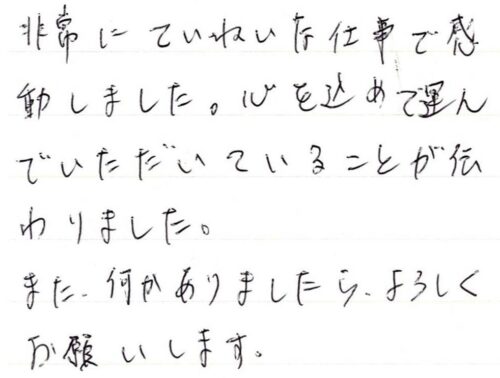 非常にていねいな仕事で感
動しました。心を込めて運ん
でいただいていることが伝
わりました。
また、何かありましたら、よろしく
お願いします。